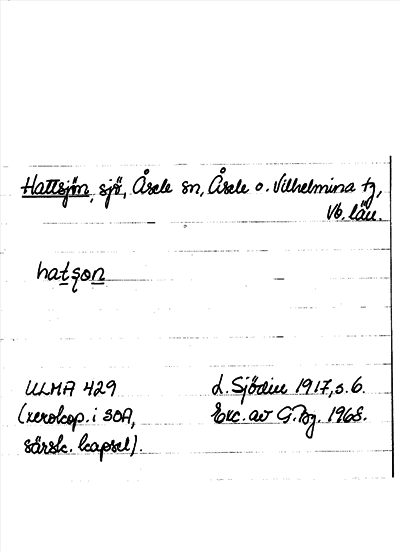 Hattsjön, sjö, Åsele sn, Åsele o. Vilhelmina tg,
Vb. län.
hatsǫn
ULMA 429
(xerokop. i SOA,
särsk. kapsel).
L. Sjödin 1917, s. 6.
Exc. av G. Bg. 1968.